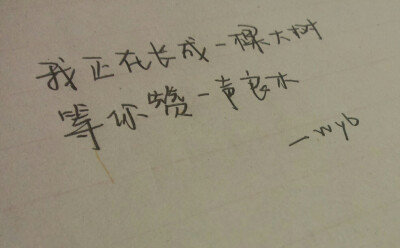 我正在长成一棵大树
等你赞一声良木
—wyb